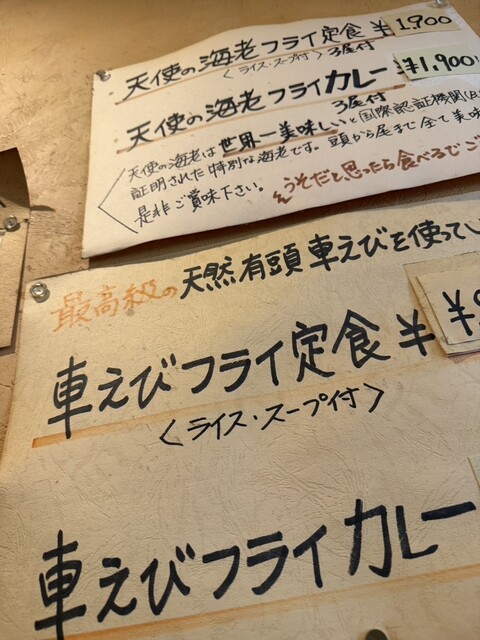 天使の海老フライ定食 ¥1,900
〈ライス・スープ付〉3尾付
天使の海老フライカレー ¥1,900
3尾付
天使の海老は世界一美味しいと国際認証機関
証明された特別な海老です。頭から尾まで全て美味
是非ご賞味下さい。うそだと思ったら食べるでご
最高級の天然有頭車えびを使ってい
車えびフライ定食 ¥
〈ライス・スープ付〉
車えびフライカレー